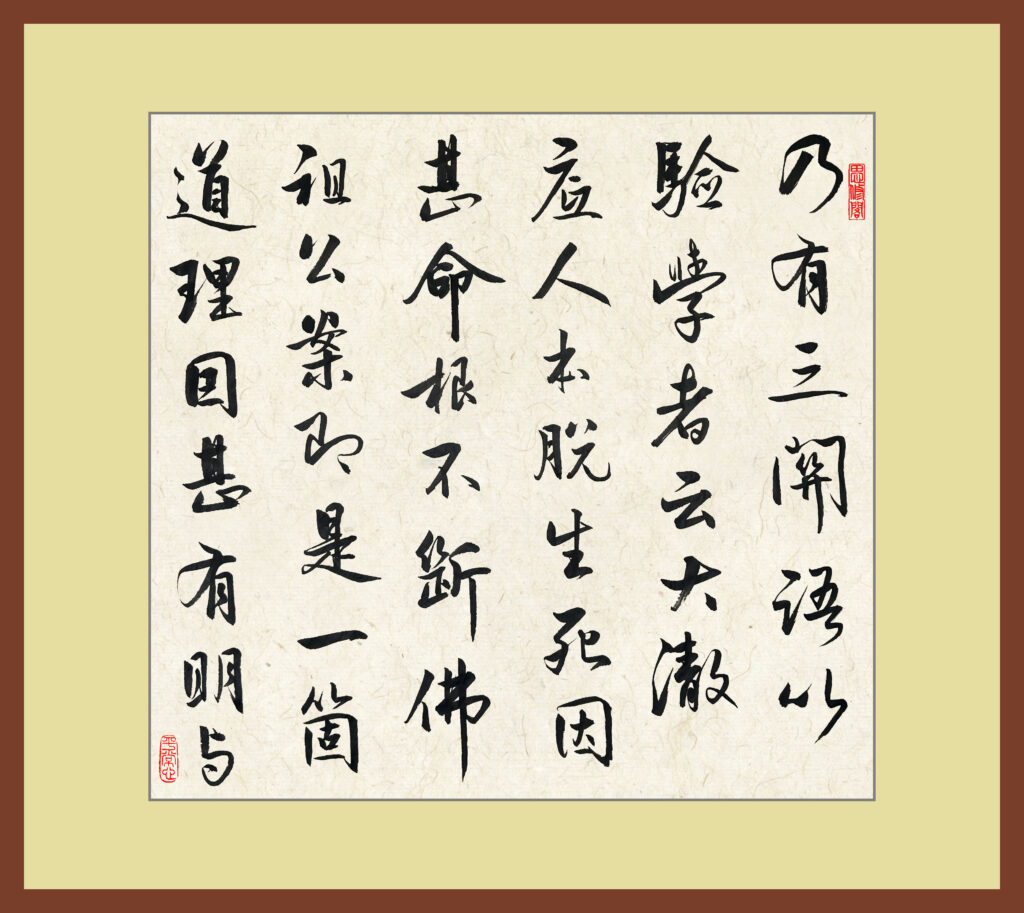 思修閣
乃有三關語以
驗學者云大澈
底人本脫生死因
甚命根不斷佛
祖公案即是一箇
道理因甚有明与
平常心